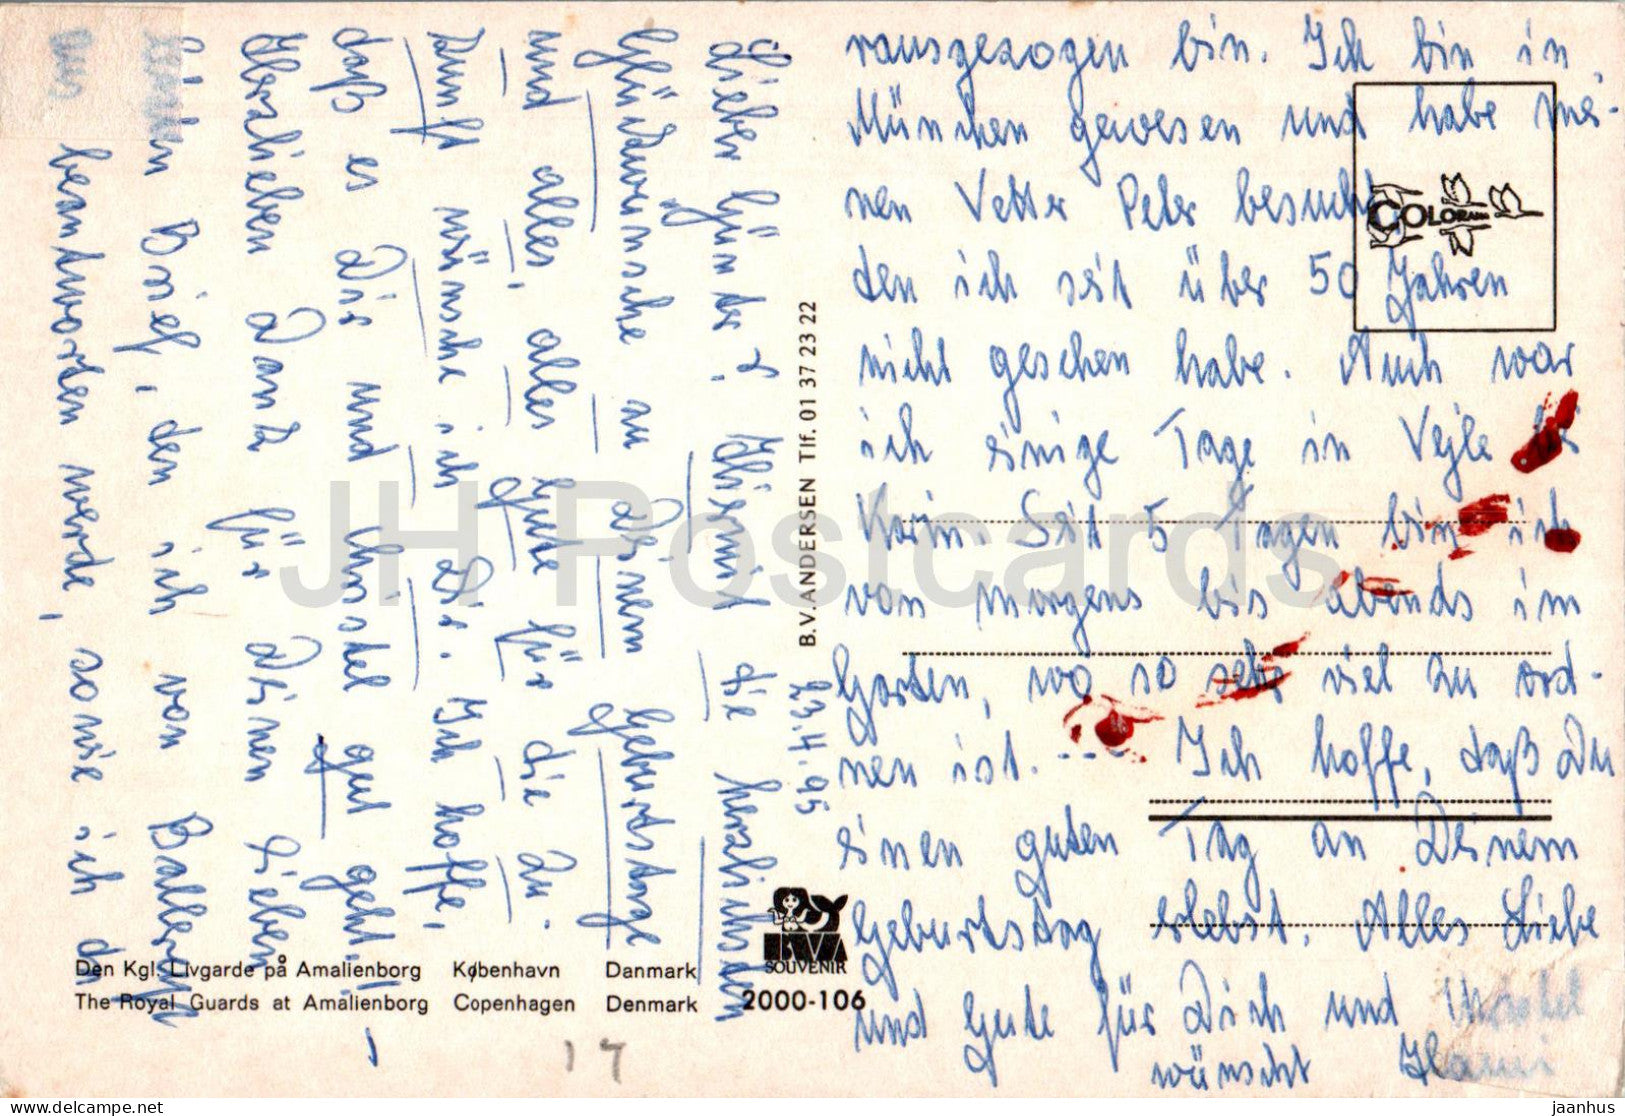 23.4.95
Lieber Günter! Hiermit die herzlichsten
Glückwünsche zu Deinem Geburtstage
und alles, alles Gute für die Zu-
kunft wünsche ich Dir. Ich hoffe,
daß es Dir und Christel gut geht.
Herzlieben Dank für Deinen lieben
Brief, den ich von
beantworten werde, sowie ich da
rausgezogen bin. Ich bin in
München gewesen und habe mei-
nen Vetter Peter besucht,
den ich seit über 50 Jahren
nicht gesehen habe. Auch war
ich einige Tage in Vejle bei
Karin. Seit 5 Tagen bin ich
von morgens bis abends im
Garten, wo so sehr viel zu ord-
nen ist. --- Ich hoffe, daß Du
einen guten Tag an Deinem
Geburtstag erlebst. Alles Liebe
und Gute für Dich und Christel
wünscht Hanni
COLORAMA
B.V. ANDERSEN Tlf. 01 37 23 22
BVA
SOUVENIR
2000-106
Den Kgl. Livgarde på Amalienborg København Danmark
The Royal Guards at Amalienborg Copenhagen Denmark
17
JH Postcards
jaanhus